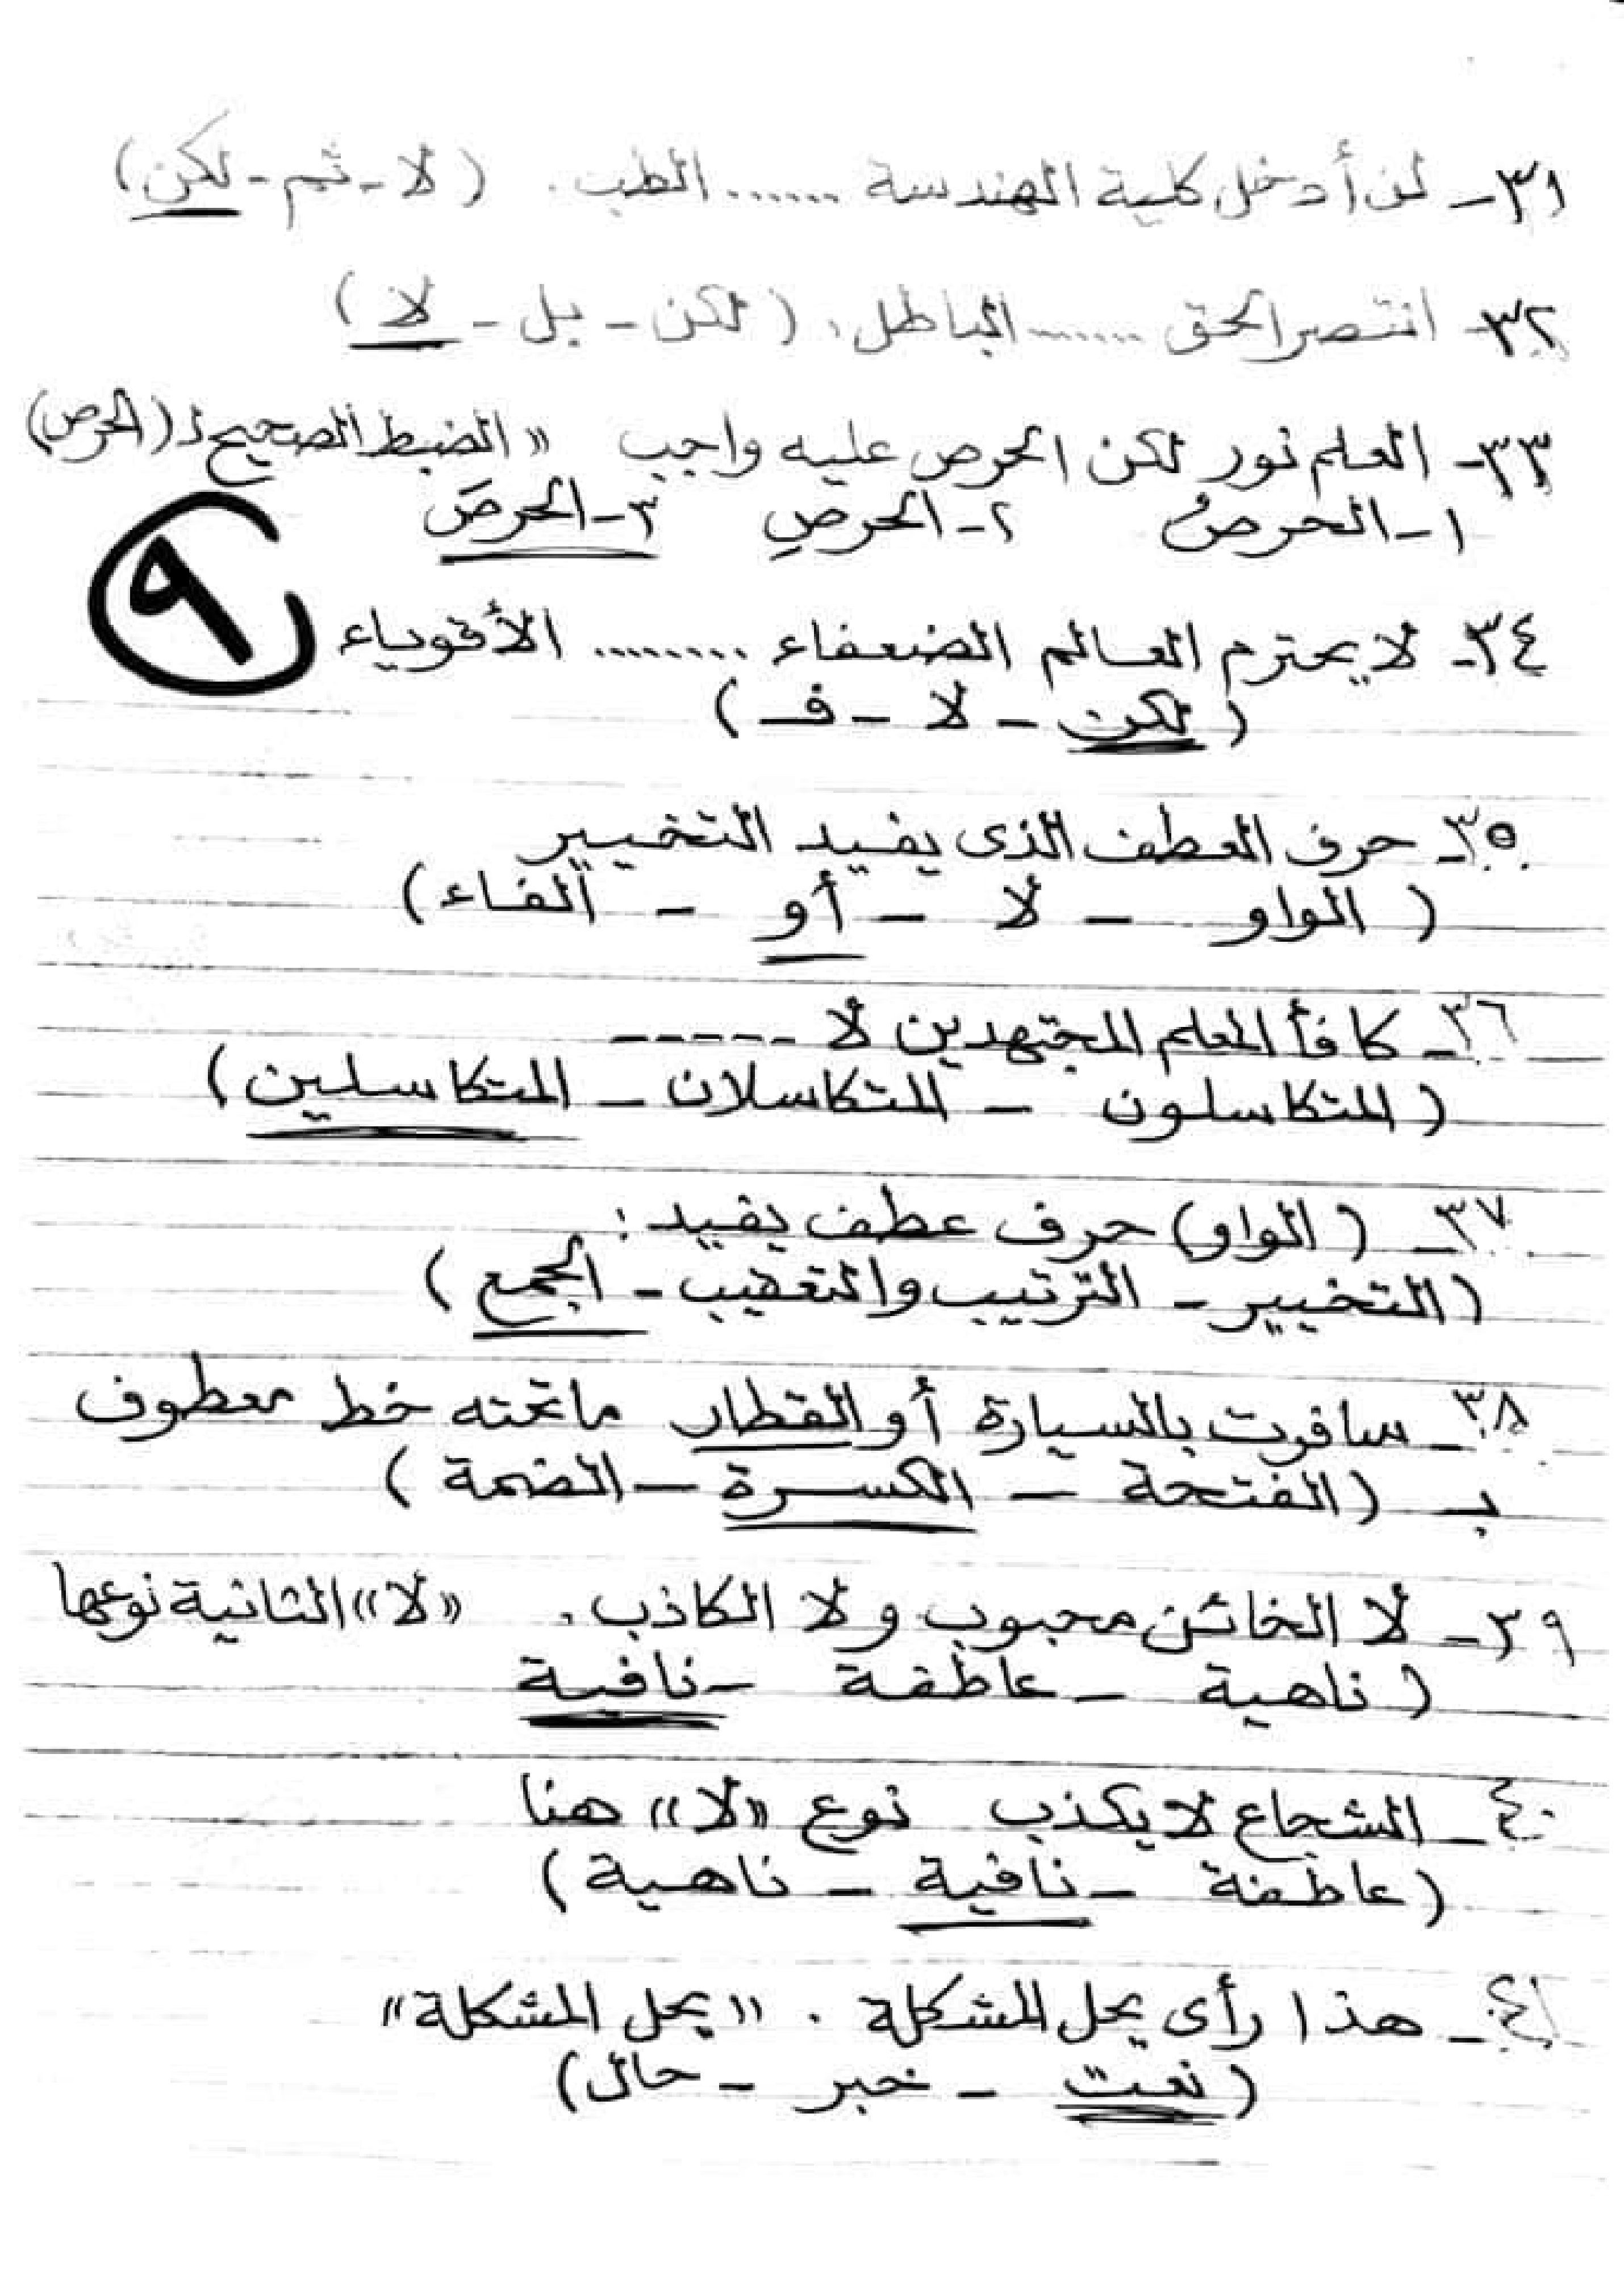 ٣١- لن أدخل كلية الهندسة ....... الطب. (لا - ثم - لكن)
٣٢- انتصر الحق ....... الباطل. (لكن - بل - لا)
٣٣- العلم نور لكن الحرص عليه واجب «الضبط الصحيح لـ (الحرص)
١- الحرصُ ٢- الحرصِ ٣- الحرصَ
٩
٣٤- لا يحترم العالم الضعفاء ........ الأقوياء
(لكن - لا - فـ)
٣٥- حرف العطف الذى يفيد التخيير
(الواو - لا - أو - الفاء)
٣٦- كافأ المعلم المجتهدين لا -----
(المتكاسلون - المتكاسلان - المتكاسلين)
٣٧- (الواو) حرف عطف يفيد :
(التخيير - الترتيب والتعقيب - الجمع)
٣٨- سافرت بالسيارة أو القطار ما تحته خط معطوف
بـ (الفتحة - الكسرة - الضمة)
٣٩- لا الخائن محبوب ولا الكاذب. «لا» الثانية نوعها
(ناهية - عاطفة - نافية
٤٠- الشجاع لا يكذب نوع «لا» هنا
(عاطفة - نافية - ناهية)
٤١- هذا رأى يحل المشكلة . «يحل المشكلة»
(نعت - خبر - حال)